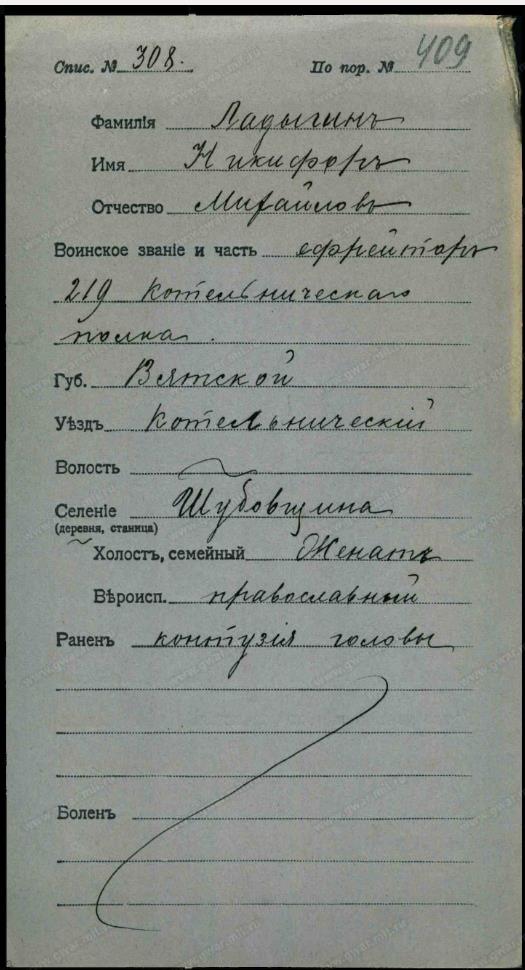 Спис. № 308. По пор. № 409
Фамилія Ладыгинъ
Имя Никифоръ
Отчество Михайловъ
Воинское званіе и часть ефрейторъ
219 Котельническаго
полка.
Губ. Вятской
Уѣздъ Котельническій
Волость
Селеніе Шубовщина
(деревня, станица)
Холостъ, семейный Женатъ
Вѣроисп. православный
Раненъ контузія головы
Боленъ